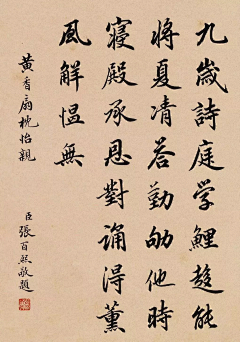 九歲詩庭学鯉趍能
将夏凊荅勤劬他時
寝殿承恩對誦得薰
風解愠無
黃香扇枕怡親
臣張百熙敬題